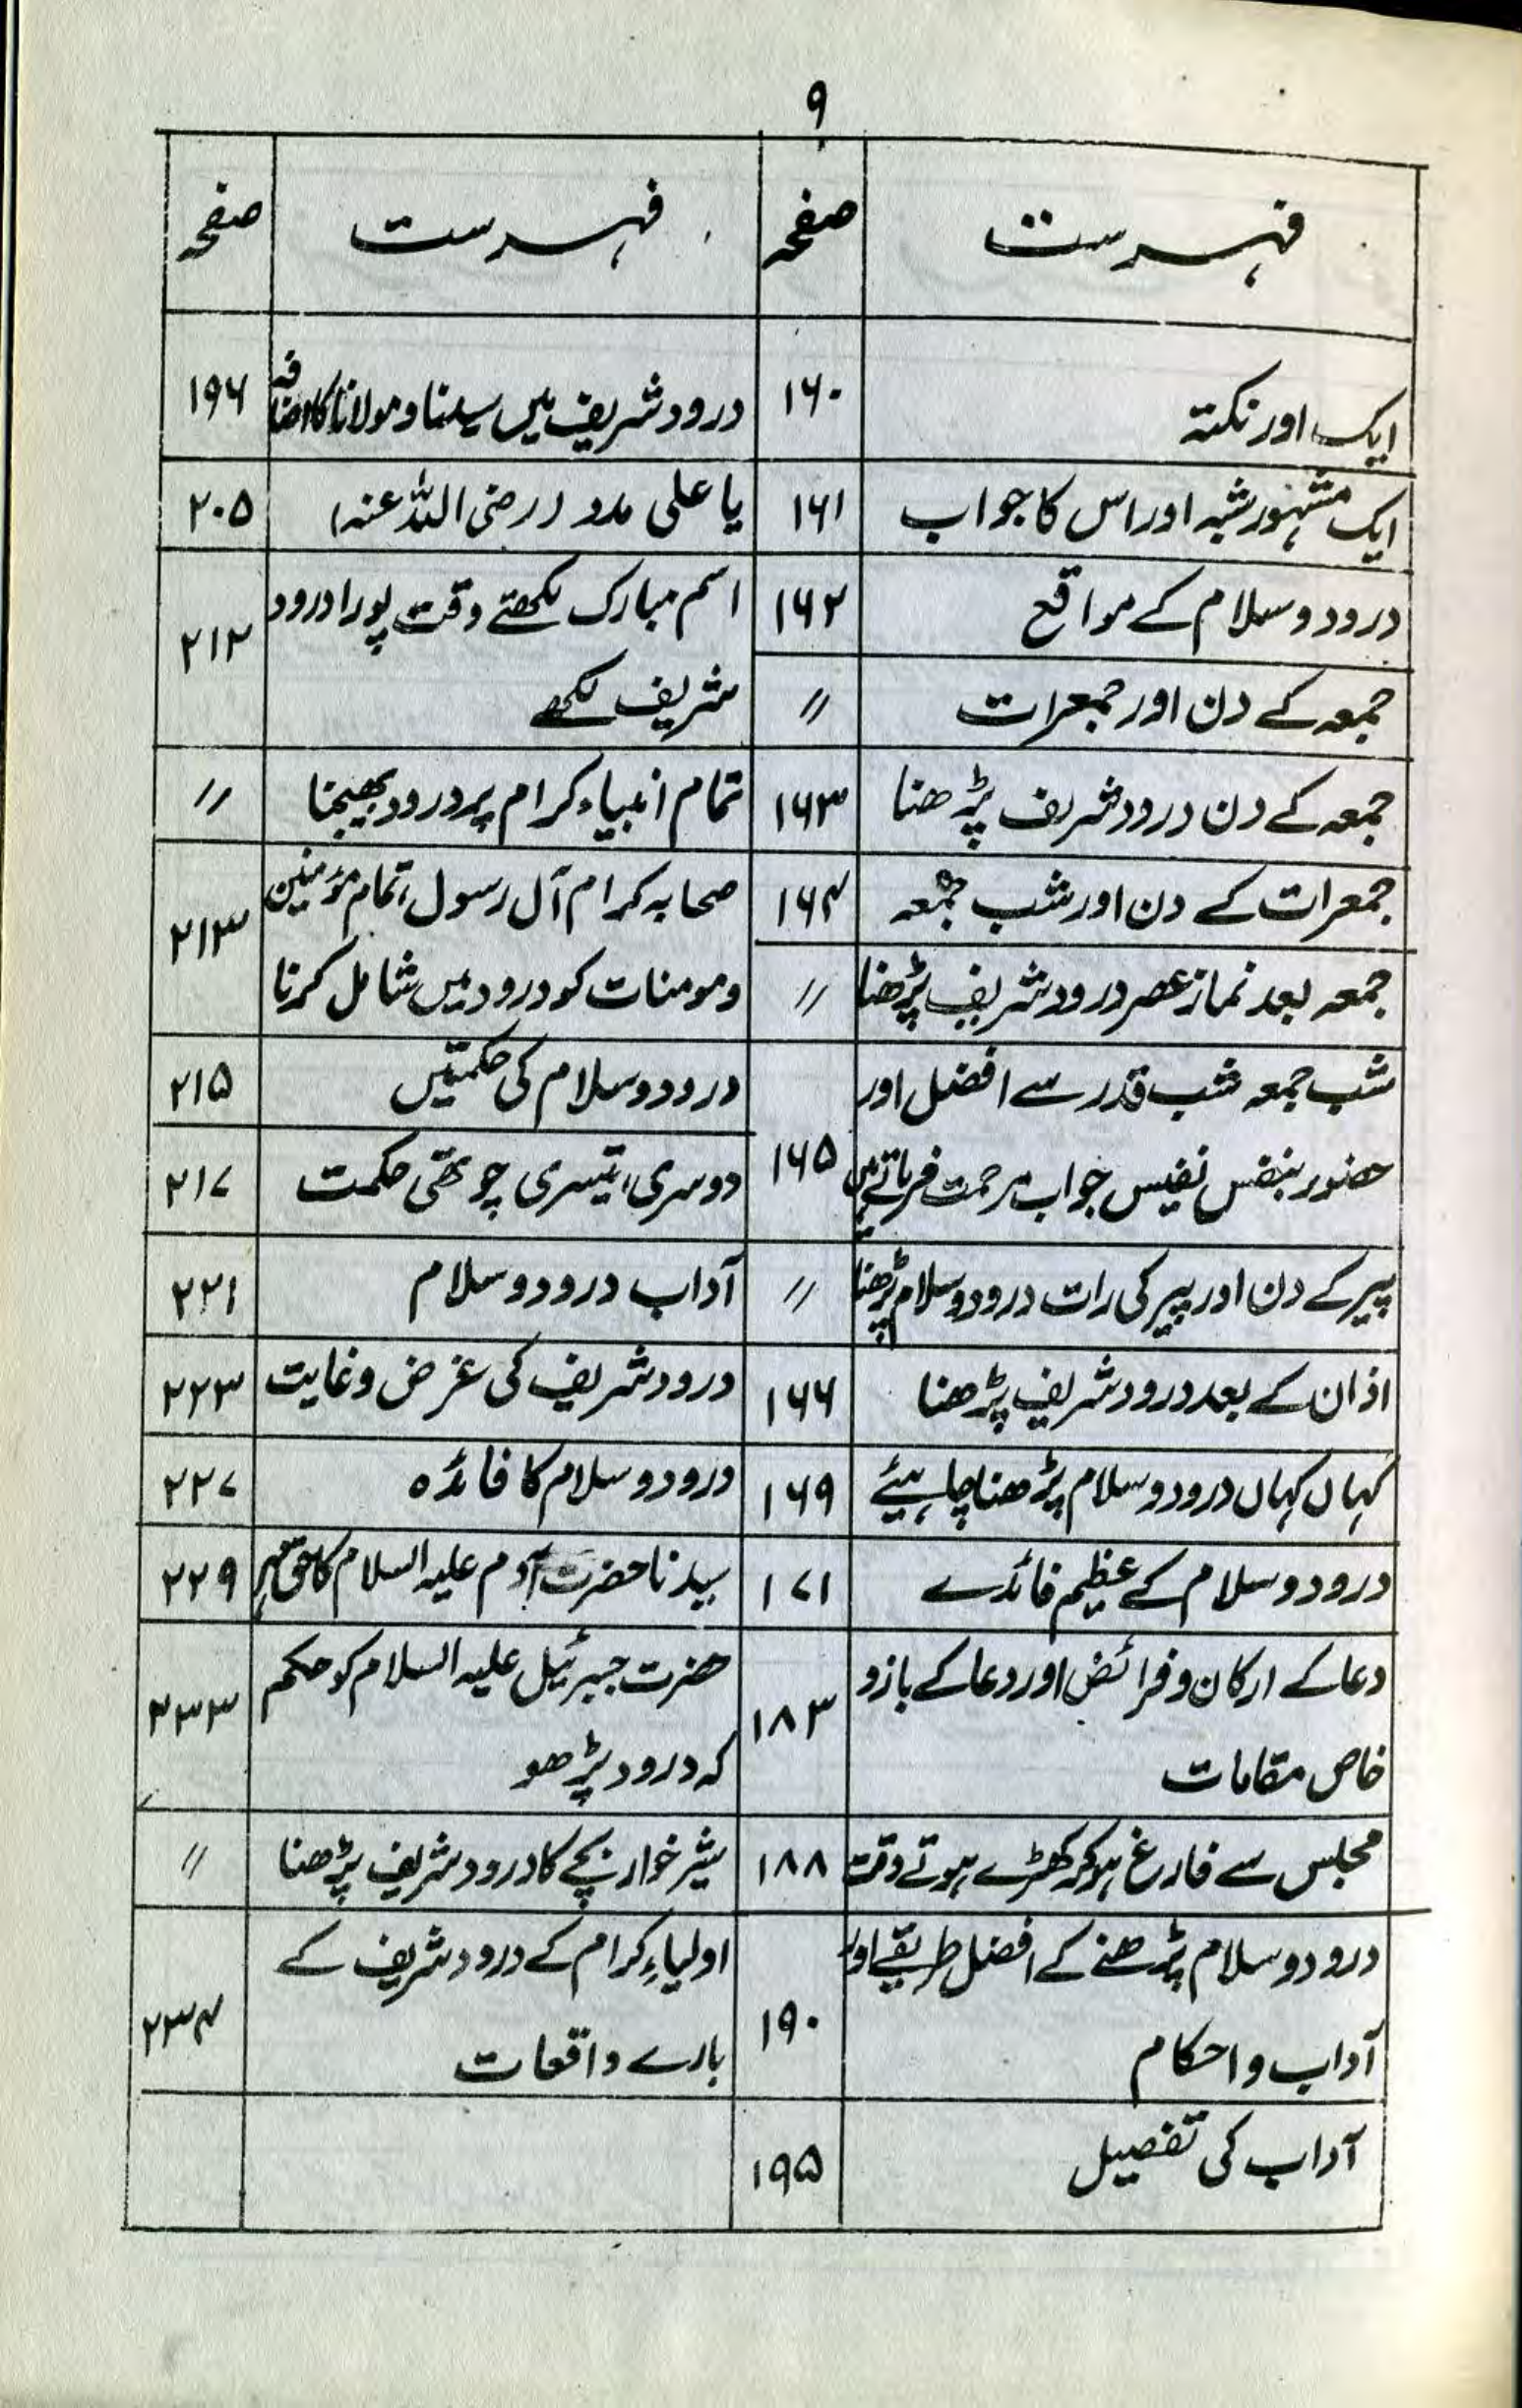 ۹
فہرست صفحہ
ایک اور نکتہ ۱۶۰
ایک مشہور شبہ اور اس کا جواب ۱۶۱
درود و سلام کے مواقع ۱۶۲
جمعہ کے دن اور جمعرات ״
جمعہ کے دن درود شریف پڑھنا ۱۶۳
جمعرات کے دن اور شب جمعہ ۱۶۴
جمعہ بعد نماز عصر درود شریف پڑھنا ״
شب جمعہ شب قدر سے افضل اور
حضور بنفس نفیس جواب مرحمت فرماتے ہیں ۱۶۵
پیر کے دن اور پیر کی رات درود و سلام پڑھنا ״
اذان کے بعد درود شریف پڑھنا ۱۶۶
کہاں کہاں درود و سلام پڑھنا چاہیئے ۱۶۹
درود و سلام کے عظیم فائدے ۱۷۱
دعا کے ارکان و فرائض اور دعا کے بازو
خاص مقامات ۱۸۳
مجلس سے فارغ ہو کر کھڑے ہوتے وقت ۱۸۸
درود و سلام پڑھنے کے افضل طریقے اور
آداب و احکام ۱۹۰
آداب کی تفصیل ۱۹۵
فہرست صفحہ
درود شریف میں سیدنا و مولانا کا اضافہ ۱۹۶
یا علی مدد (رضی اللہ عنہ) ۲۰۵
اسم مبارک لکھتے وقت پورا درود
شریف لکھے ۲۱۲
تمام انبیاء کرام پر درود بھیجنا ״
صحابہ کرام آل رسول، تمام مؤمنین
و مومنات کو درود میں شامل کرنا ۲۱۳
درود و سلام کی حکمتیں ۲۱۵
دوسری، تیسری چوتھی حکمت ۲۱۷
آداب درود و سلام ۲۲۱
درود شریف کی غرض و غایت ۲۲۳
درود و سلام کا فائدہ ۲۲۷
سیدنا حضرت آدم علیہ السلام کا حق مہر ۲۲۹
حضرت جبرئیل علیہ السلام کو حکم
کہ درود پڑھو ۲۳۳
شیر خوار بچے کا درود شریف پڑھنا ״
اولیاءِ کرام کے درود شریف کے
بارے واقعات ۲۳۴